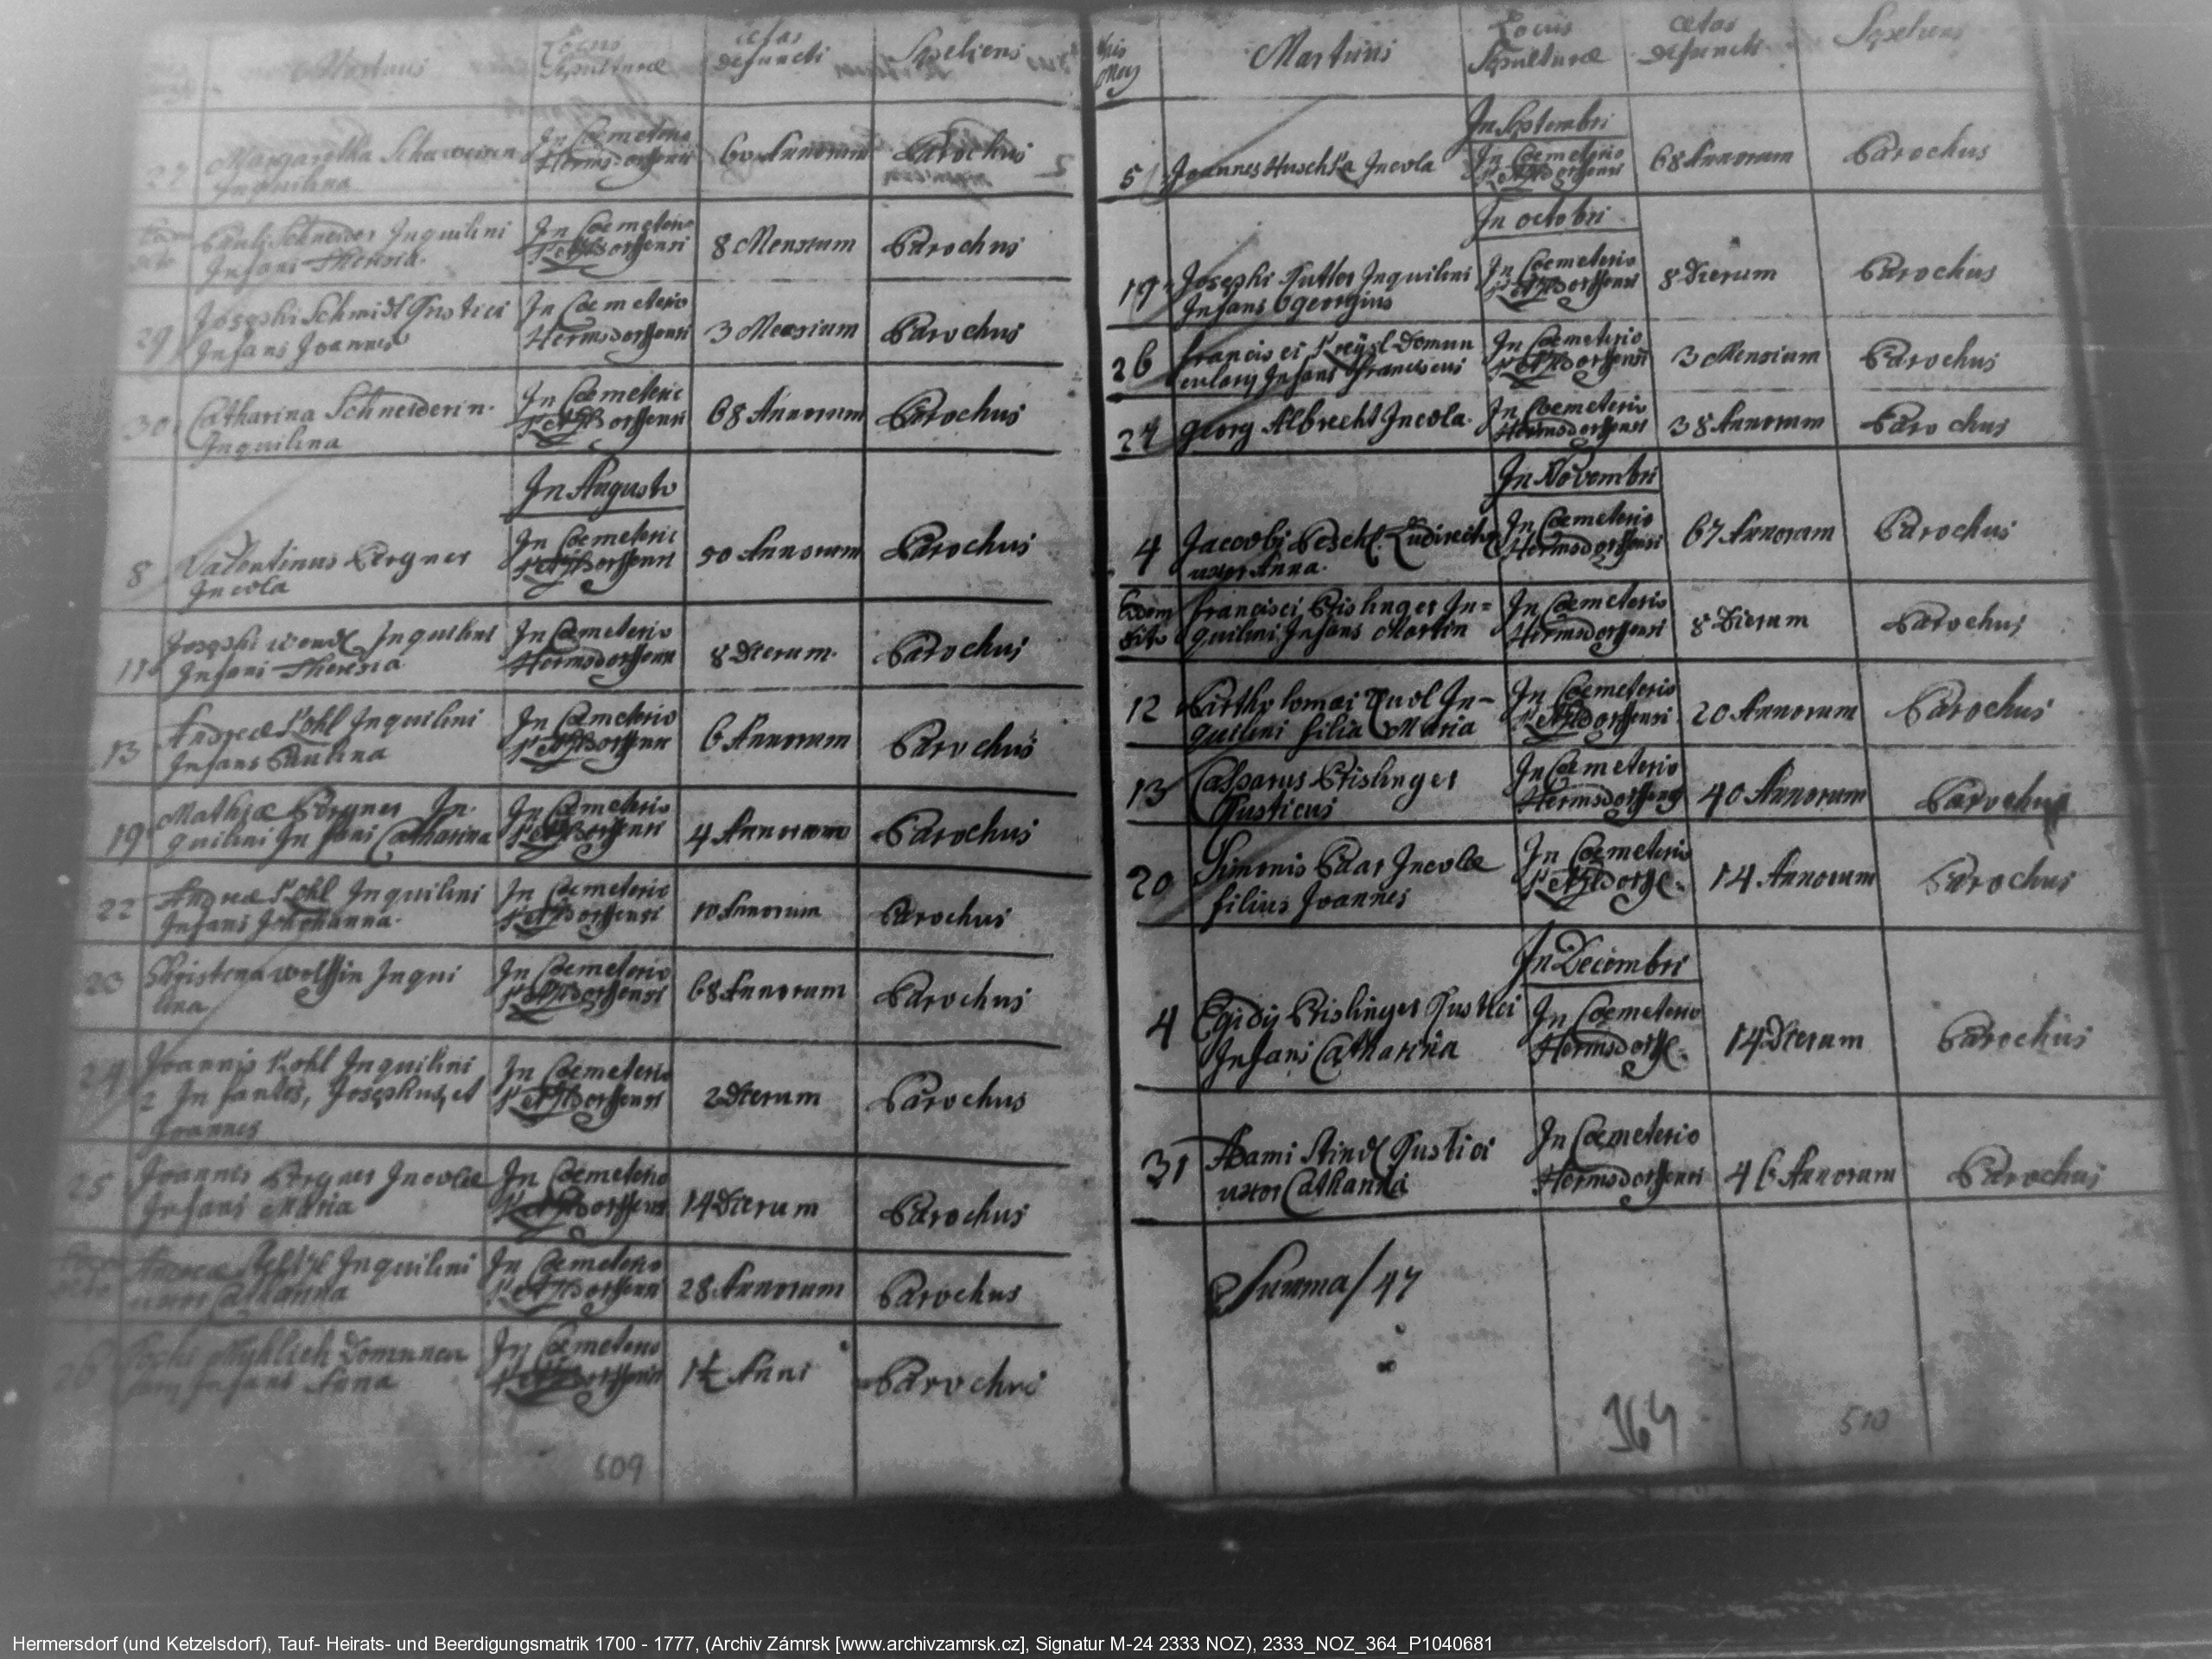 Mortuus
Locus
Sepulturæ
ætas
defuncti
Sepeliens
27
Margaretha
Inquilina
In Coemeterio
Hermsdorffensi
60 Annorum
Parochus
Pauli Schneider Inquilini
Infans Theresia.
In Coemeterio
Ketzlsdorffensi
8 Mensium
Parochus
29
Josephi Schmidl Rustici
Infans Joannes
In Coemeterio
Hermsdorffensi
3 Mensium
Parochus
30
Catharina Schneiderin.
Inquilina
In Coemeterio
Ketzlsdorffensi
68 Annorum
Parochus
In Augusto
8
Valentinus Pergner
Incola
In Coemeterio
Ketzlsdorffensi
50 Annorum
Parochus
11
Josephi Wondl Inquilini
Infans Theresia
In Coemeterio
Hermsdorffensi
8 Dierum.
Parochus
13
Andreæ Kohl Inquilini
Infans Paulina
In Coemeterio
Ketzlsdorffensi
6 Annorum
Parochus
19
Mathiæ Pergner In-
quilini Infans Catharina
In Coemeterio
Ketzlsdorffensi
4 Annorum
Parochus
22
Andreæ Kohl Inquilini
Infans Johanna.
In Coemeterio
Ketzlsdorffensi
10 Annorum
Parochus
23
Christina Wolffin Inqui
lina
In Coemeterio
Ketzlsdorffensi
68 Annorum
Parochus
24
Joannis Kohl Inquilini
2 Infantes, Josephus, et
Joannes
In Coemeterio
Ketzlsdorffensi
2 Dierum
Parochus
25
Joannes Pergner Incolæ
Infans Maria
In Coemeterio
Ketzlsdorffensi
14 Dierum
Parochus
Andreæ Inquilini
uxor Catharina
In Coemeterio
Ketzlsdorffensi
28 Annorum
Parochus
26
Infans Anna
In Coemeterio
Ketzlsdorffensi
1½ Anni
Parochus
509
Mortuus
Locus
Sepulturæ
ætas
defuncti
Sepeliens
In Septembri
5
Joannes Huschka Incola
In Coemeterio
Ketzlsdorffensi
68 Annorum
Parochus
In octobri
19
Josephi Inquilini
Infans Georgius
In Coemeterio
Ketzlsdorffensi
8 Dierum
Parochus
26
Francisci Kreysl Domun
cularij Infans Franciscus
In Coemeterio
Ketzlsdorffensi
3 Mensium
Parochus
27
Georg Albrecht Incola.
In Coemeterio
Hermsdorffensi
38 Annorum
Parochus
In Novembri
4
Jacobi Peschl Ludirectoris
uxor Anna.
In Coemeterio
Hermsdorffensi
67 Annorum
Parochus
Eodem
Dito
Francisci Peislinger In=
quilini Infans Martin
In Coemeterio
Hermsdorffensi
8 Dierum
Parochus
12
Bartholomæi In-
quilini filia Maria
In Coemeterio
Ketzlsdorffensi
20 Annorum
Parochus
13
Casparus Peislinger
Rusticus
In Coemeterio
Hermsdorffensi
40 Annorum
Parochus
20
Simonis Paar Incolæ
filius Joannes
In Coemeterio
Ketzlsdorff.
14 Annorum
Parochus
In Decembri
4
Egidij Peislinger Rustici
Infans Catharina
In Coemeterio
Hermsdorff.
14 Dierum
Parochus
31
Adami Stindl Rustici
uxor Catharina
In Coemeterio
Hermsdorffensi
46 Annorum
Parochus
Summa / 47
364
510
Hermersdorf (und Ketzelsdorf), Tauf- Heirats- und Beerdigungsmatrik 1700 - 1777, (Archiv Zámrsk [www.archivzamrsk.cz], Signatur M-24 2333 NOZ), 2333_NOZ_364_P1040681